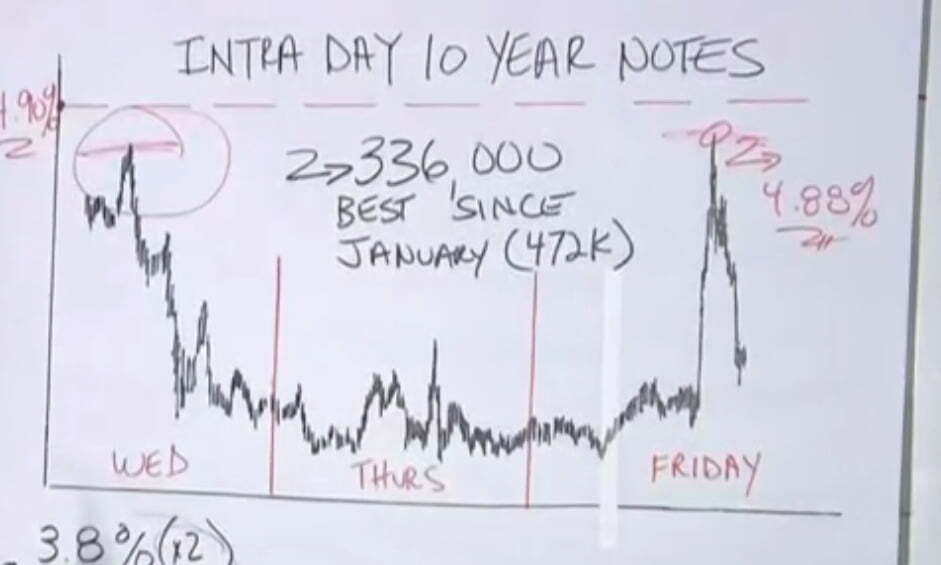 INTRA DAY 10 YEAR NOTES
4.90%
336,000
BEST SINCE
JANUARY (472K)
4.88%
WED
THURS
FRIDAY
3.8% (x2)